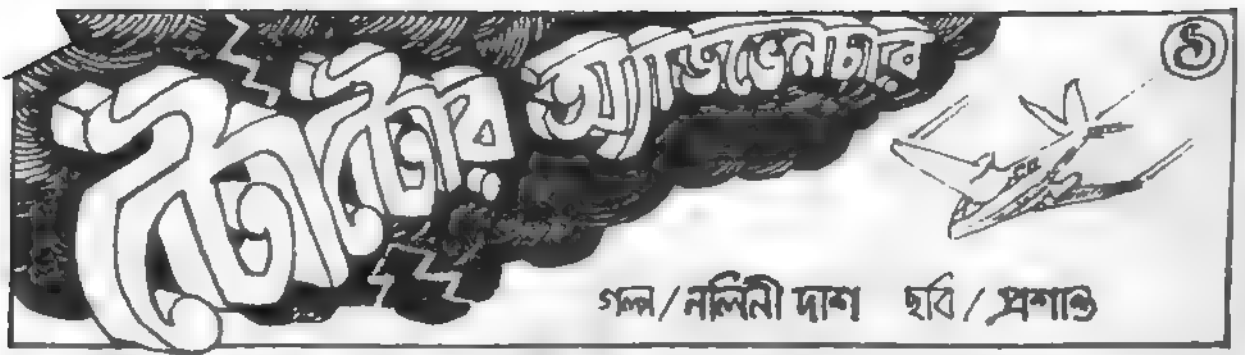 কাকার অ্যাডভেনচার ৬
গল্প / নলিনী দাশ ছবি / প্রশান্ত